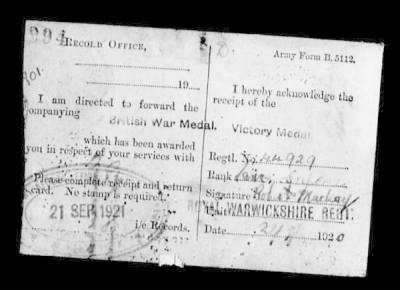 D.
RECORD OFFICE,
19
I am directed to forward the
ompanying
British War Medal.
which has been awarded
you in respect of your services with
Please complete receipt and return
card. No stamp is required.
21 SEP 1921
i/c Records.
Army Form B. 5112.
I hereby acknowledge the
receipt of the
Victory Medal
Regtl. No.
929
Rank
Signature
ROYAL WARWICKSHIRE REGT.
Date
1920